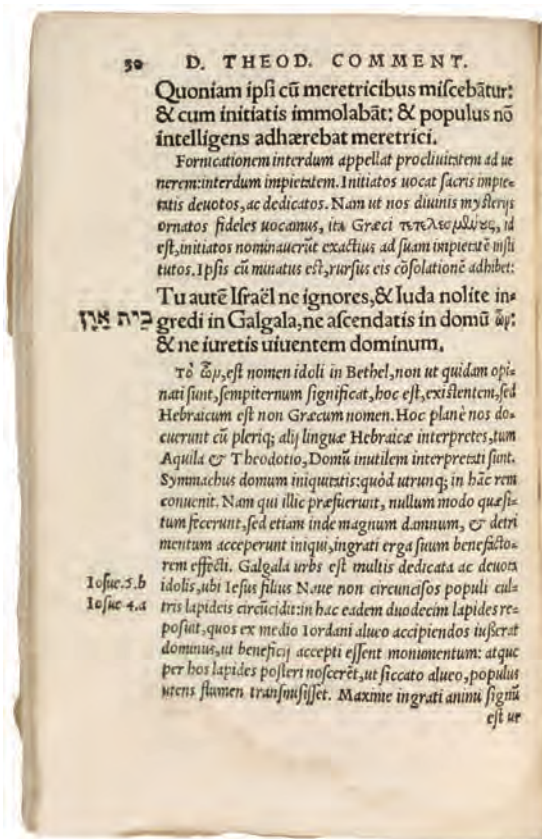 50 D. THEOD. COMMENT.
Quoniam ipſi cũ meretricibus miſcebãtur:
& cum initiatis immolabãt: & populus nõ
intelligens adhærebat meretrici.
Fornicationem interdum appellat procliuitatem ad ue
nerem: interdum impietatem. Initiatos uocat ſacris impie=
tatis deuotos, ac dedicatos. Nam ut nos diuinis myſterijs
ornatos fideles uocamus, ita Græci τετελεσμένους, id
eſt, initiatos nominauerũt exactius ad ſuam impietatẽ inſti
tutos. Ipſis cũ minatus eſt, rurſus eis cõſolationẽ adhibet:
Tu autẽ Iſraël ne ignores, & Iuda nolite in=
בית און gredi in Galgala, ne aſcendatis in domũ ὦν:
& ne iuretis uiuentem dominum.
Τὸ ὦν, eſt nomen idoli in Bethel, non ut quidam opi=
nati ſunt, ſempiternum ſignificat, hoc eſt, exiſtentem, ſed
Hebraicum eſt non Græcum nomen. Hoc planè nos do=
cuerunt cũ pleriq; alij linguæ Hebraicæ interpretes, tum
Aquila & Theodotio, Domũ inutilem interpretati ſunt.
Symmachus domum iniquitatis: quòd utrunq; in hãc rem
conuenit. Nam qui illic præfuerunt, nullum modo quæſi=
tum fecerunt, ſed etiam inde magnum damnum, & detri
mentum acceperunt iniqui, ingrati erga ſuum benefacto=
rem effecti. Galgala urbs eſt multis dedicata ac deuota
Ioſue.5.b idolis, ubi Ieſus filius Naue non circunciſos populi cul=
Ioſue 4.a tris lapideis circũcidit: in hac eadem duodecim lapides re=
poſuit, quos ex medio Iordani alueo accipiendos iuſſerat
dominus, ut beneficij accepti eſſent monumentum: atque
per hos lapides poſteri noſcerẽt, ut ſiccato alueo, populus
utens flumen tranſmiſiſſet. Maxime ingrati animi ſignũ
eſt ue